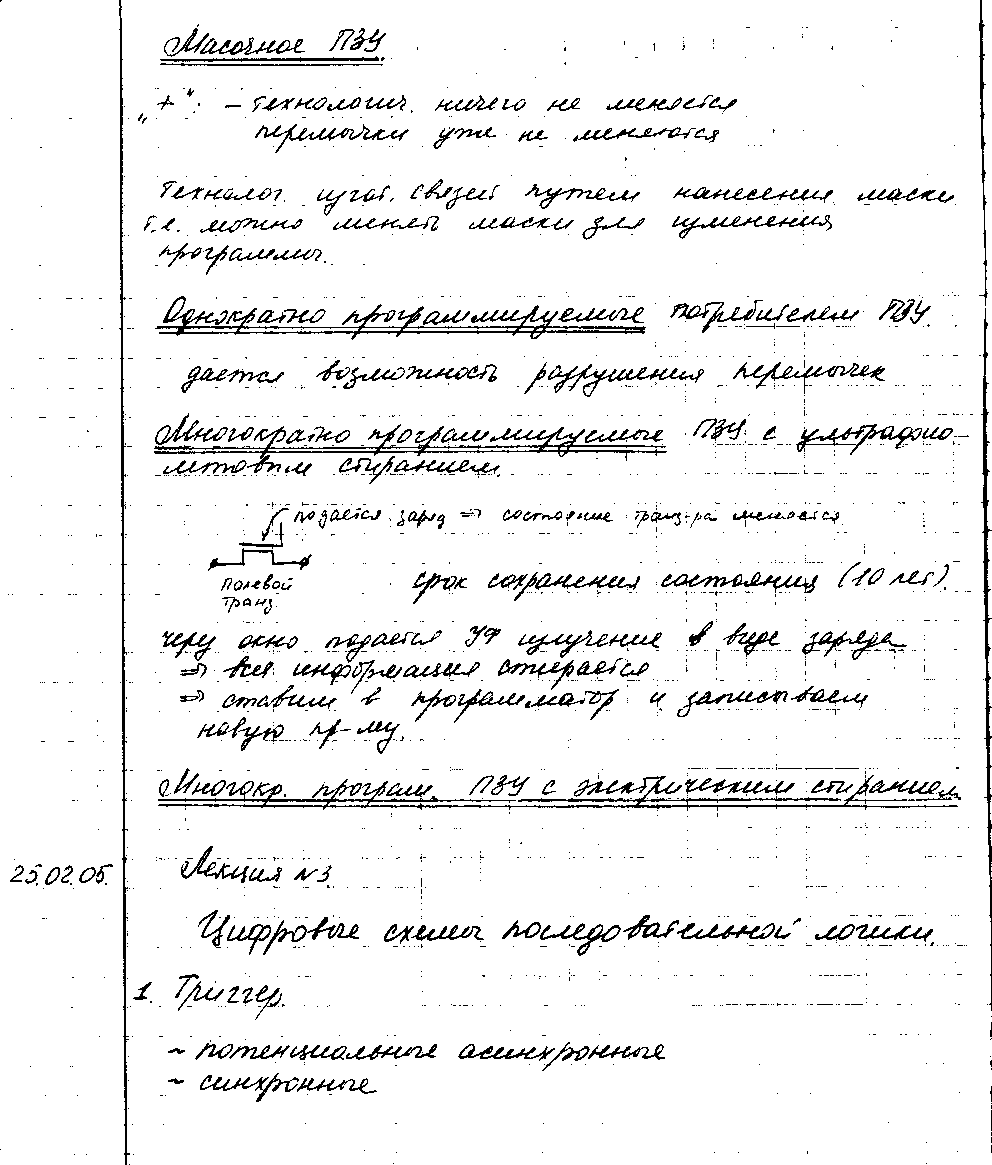 Масочное ПЗУ
„+“: – технологич. ничего не меняется
перемычки уже не меняются
Технолог. изгот. связей путем нанесения маски
т.е. можно менять маски для изменения
программы.
Однократно программируемые потребителем ПЗУ.
дается возможность разрушения перемычек
Многократно программируемые ПЗУ с ультрафио-
летовым стиранием.
подается заряд ⇒ состояние транз-ра меняется
Полевой
транз.
срок сохранения состояния (10 лет).
через окно подается УФ излучение в виде заряда
⇒ вся информация стирается
⇒ ставим в программатор и записываем
новую пр-му.
Многокр. програм. ПЗУ с электрическим стиранием
25.02.05.
Лекция №3.
Цифровые схемы последовательной логики.
1. Триггер.
~ потенциальные асинхронные
~ синхронные